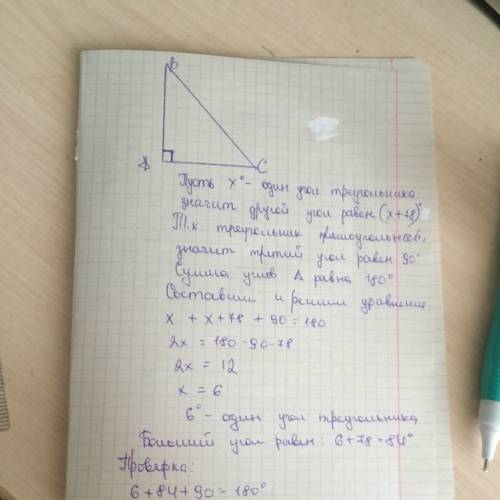 B
A
C
Пусть x° - один угол треугольника
значит другой угол равен (x+78)°
Т.к. треугольник прямоугольный,
значит третий угол равен 90°
Сумма углов Δ равна 180°
Составим и решим уравнение.
x + x+78 + 90 = 180
2x = 180-90-78
2x = 12
x = 6
6° - один угол треугольника
Больший угол равен: 6+78=84°.
Проверка:
6+84+90=180°